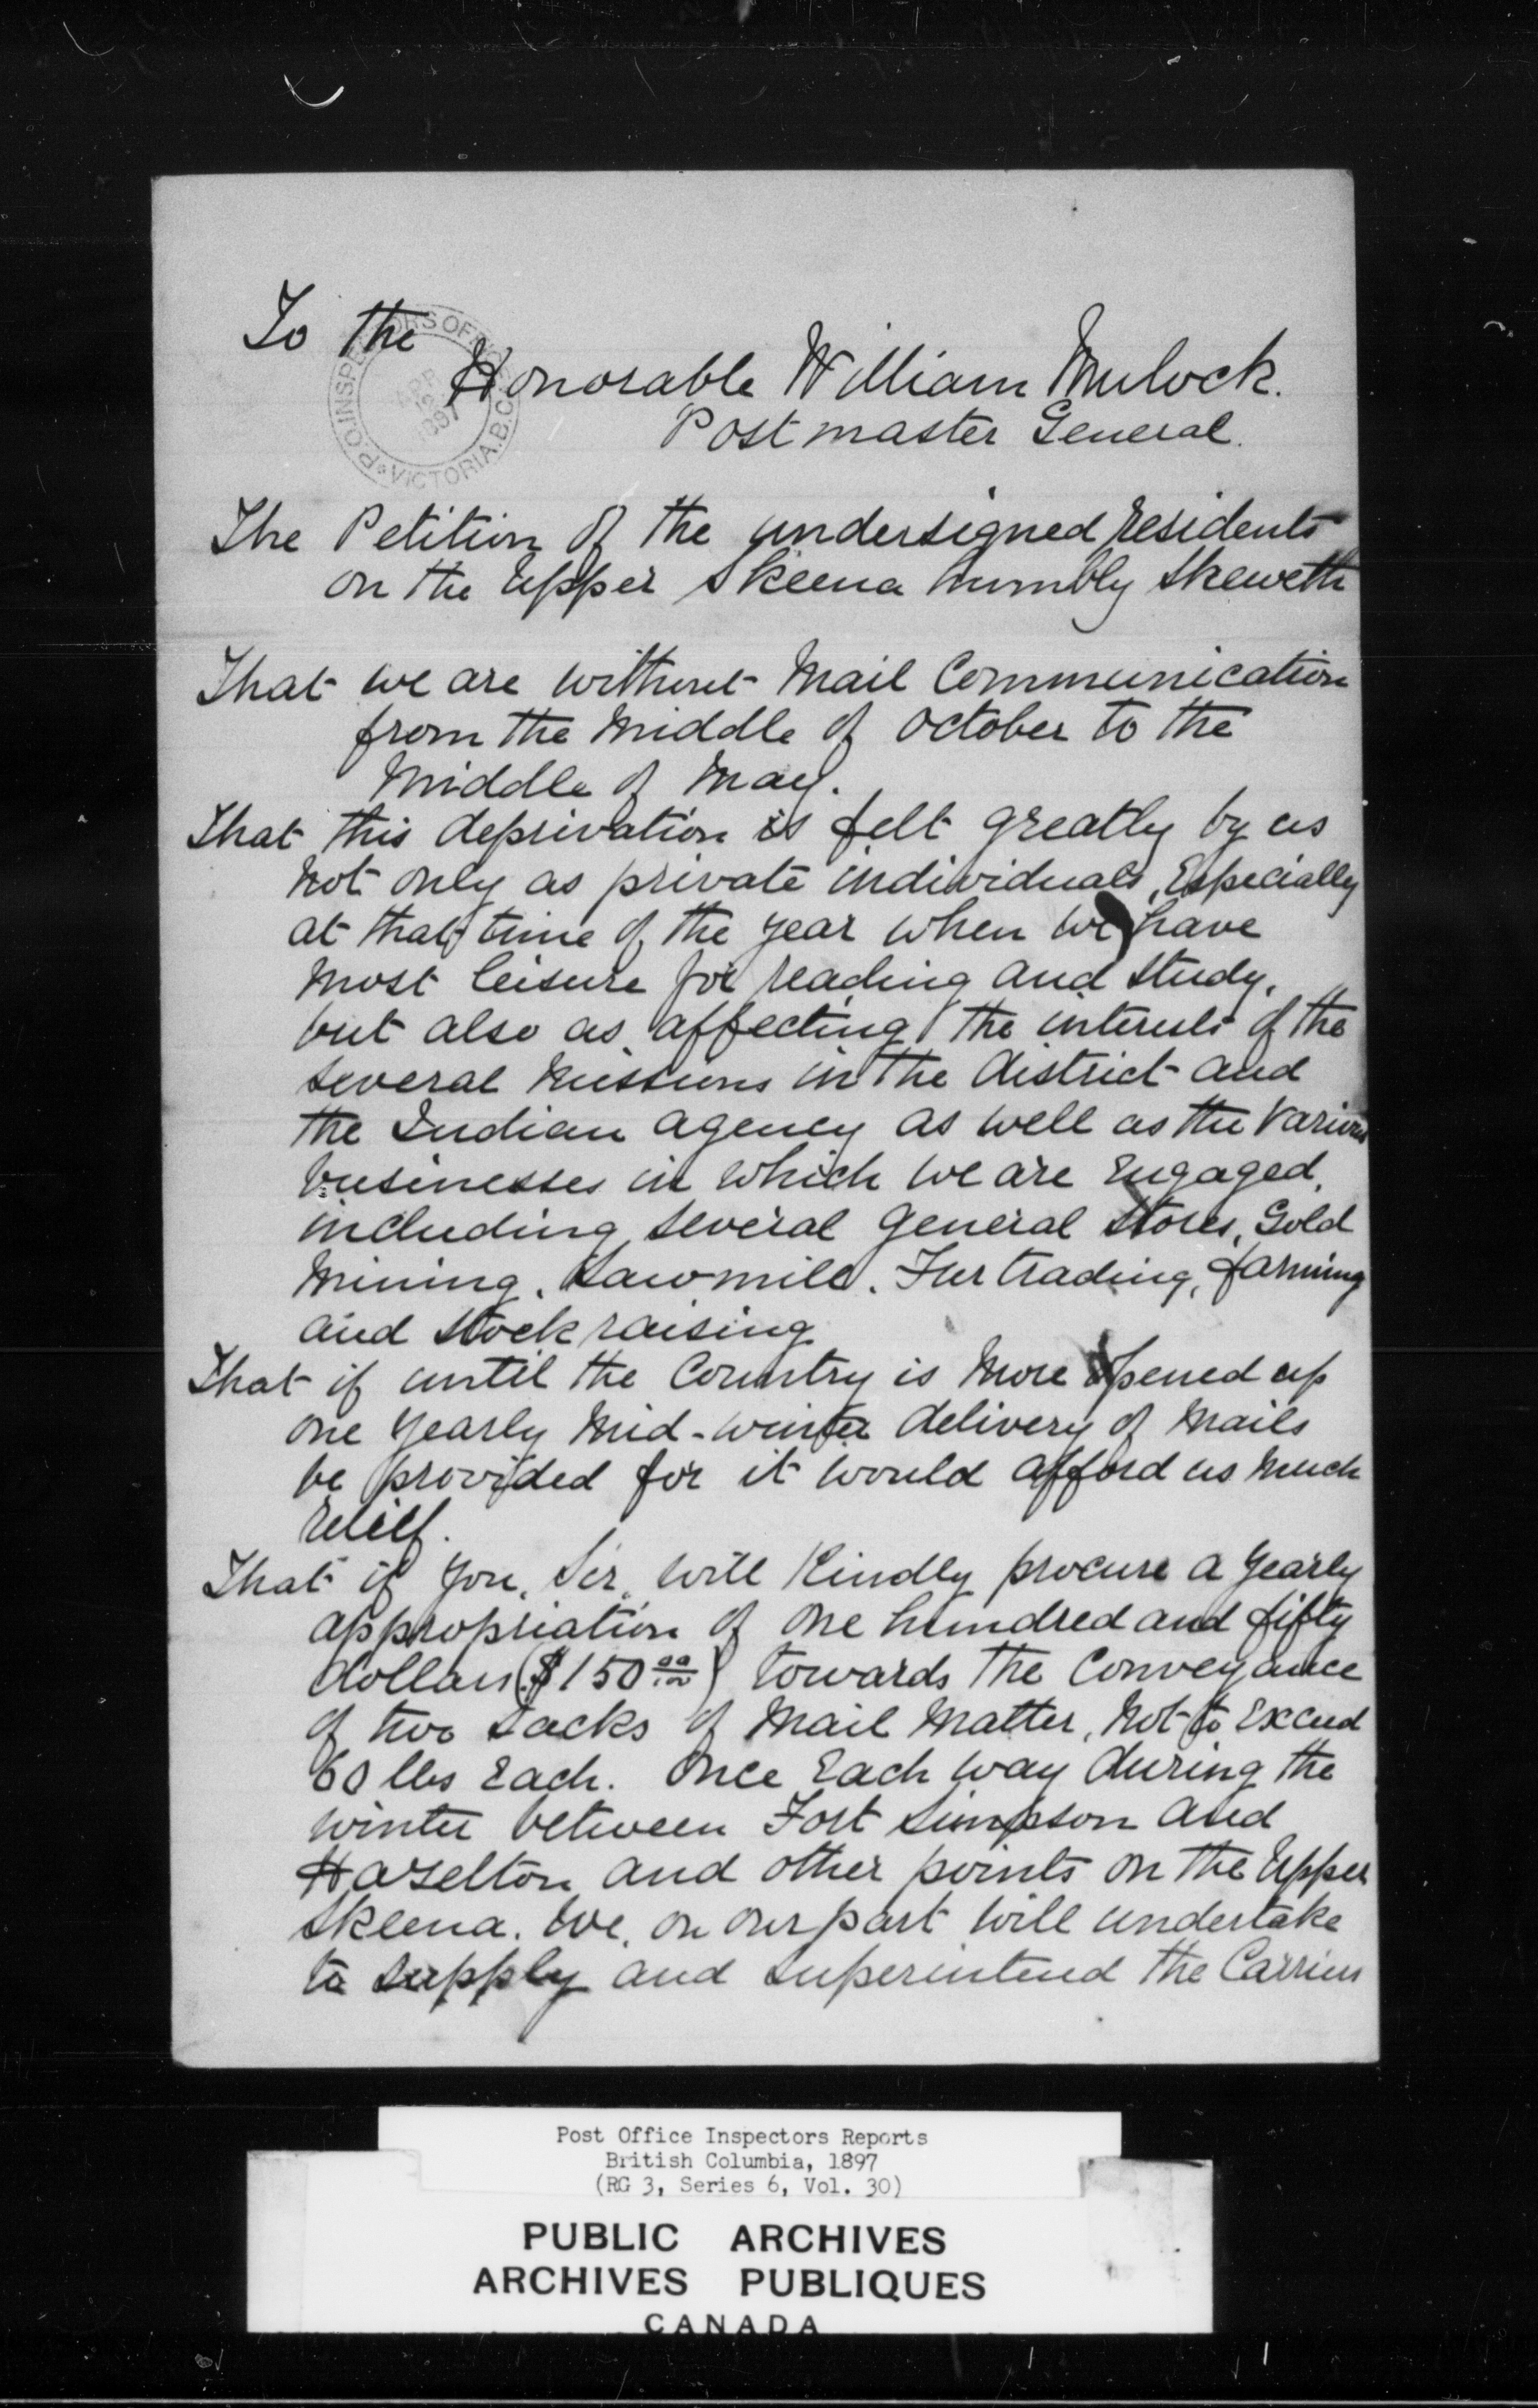 To the
Honorable William Mulock.
Postmaster General.
P.O. INSPECTORS OFFICE
APR
1897
VICTORIA. B.C.
The Petition of the undersigned residents
on the Upper Skeena humbly sheweth
That we are without Mail Communication
from the Middle of October to the
Middle of May.
That this deprivation is felt greatly by us
not only as private individuals, Especially
at that time of the year when we have
most leisure for reading and study,
but also as affecting the interests of the
several Missions in the district and
the Indian agency as well as the various
businesses in which we are Engaged,
including several general stores, Gold
Mining, Sawmill, Fur trading, farming
and stock raising
That if until the Country is More opened up
one yearly Mid-winter delivery of Mails
be provided for it would afford us much
relief.
That if you, Sir, will Kindly procure a yearly
appropriation of one hundred and fifty
dollars ($150.00) towards the Conveyance
of two sacks of Mail Matter, not to Exceed
60 lbs Each. Once Each way during the
winter between Fort Simpson and
Hazelton and other points on the Upper
Skeena. We, on our part will undertake
to supply and superintend the Carriers
Post Office Inspectors Reports
British Columbia, 1897
(RG 3, Series 6, Vol. 30)
PUBLIC ARCHIVES
ARCHIVES PUBLIQUES
CANADA